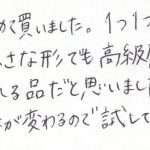 て買いました。1つ1つ
さな形でも高級
れる品だと思いまし
が変わるので試して